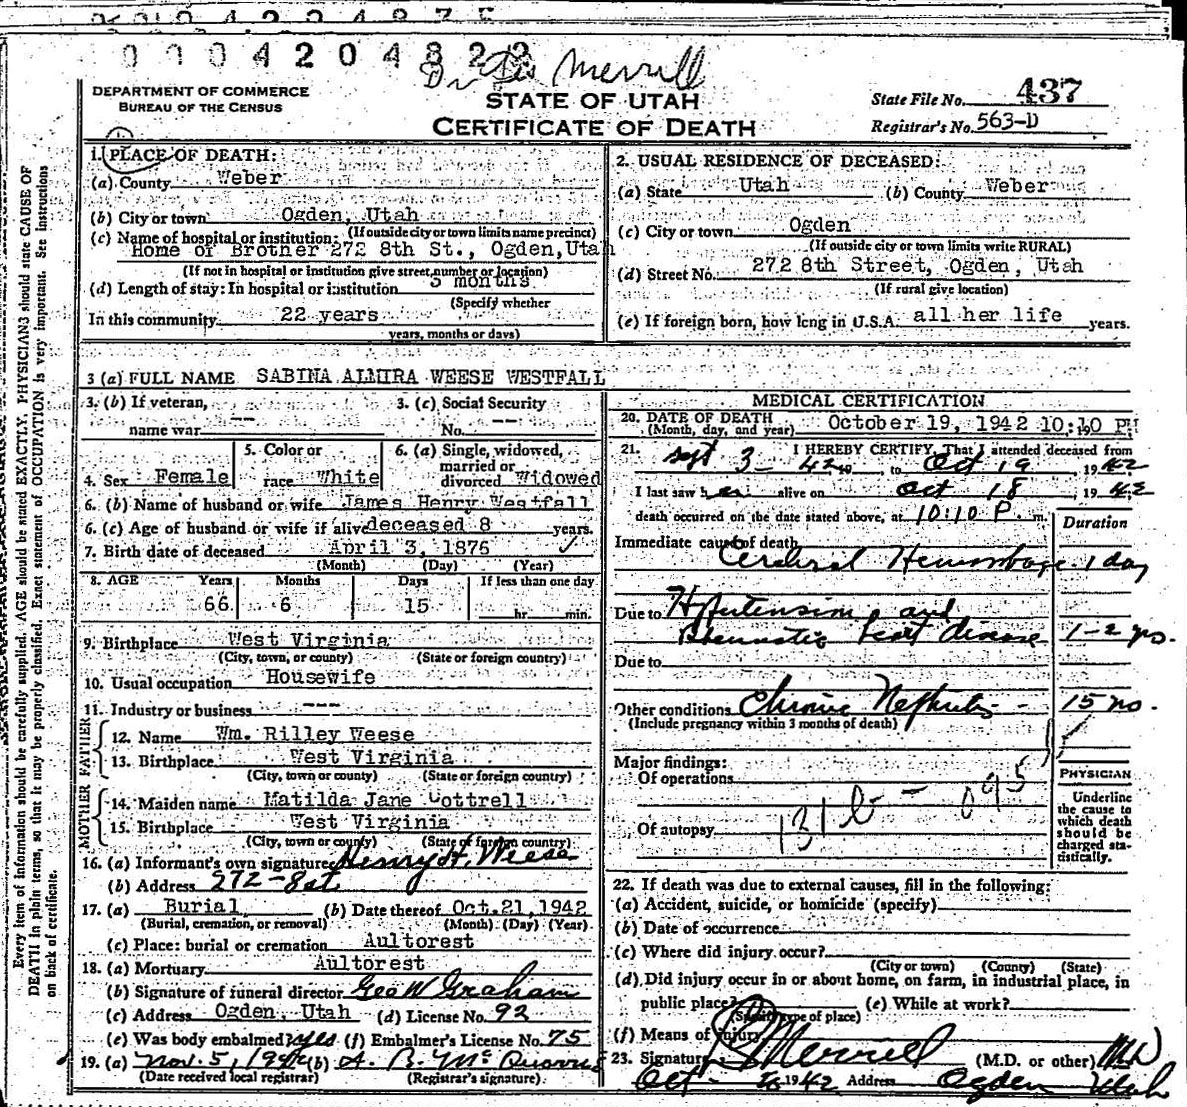 0 0 0 4 2 0 4 8 2 2
Dr Merrill
DEPARTMENT OF COMMERCE
BUREAU OF THE CENSUS
STATE OF UTAH
CERTIFICATE OF DEATH
State File No. 437
Registrar's No. 563-D
1. PLACE OF DEATH:
(a) County Weber
(b) City or town Ogden, Utah
(If outside city or town limits name precinct)
(c) Name of hospital or institution:
Home of Brother 272 8th St., Ogden, Utah
(If not in hospital or institution give street number or location)
(d) Length of stay: In hospital or institution 3 months
(Specify whether
In this community 22 years
years, months or days)
2. USUAL RESIDENCE OF DECEASED:
(a) State Utah (b) County Weber
(c) City or town Ogden
(If outside city or town limits write RURAL)
(d) Street No. 272 8th Street, Ogden, Utah
(If rural give location)
(e) If foreign born, how long in U.S.A. all her life years.
3 (a) FULL NAME SABINA ALMIRA WEESE WESTFALL
3. (b) If veteran, name war -- 3. (c) Social Security No. --
4. Sex Female 5. Color or race White 6. (a) Single, widowed, married or divorced Widowed
6. (b) Name of husband or wife James Henry Westfall
6. (c) Age of husband or wife if alive deceased 8 years.
7. Birth date of deceased April 3, 1876
(Month) (Day) (Year)
8. AGE Years Months Days If less than one day
66 6 15 hr. min.
9. Birthplace West Virginia
(City, town, or county) (State or foreign country)
10. Usual occupation Housewife
11. Industry or business ---
FATHER
12. Name Wm. Rilley Weese
13. Birthplace West Virginia
(City, town or county) (State or foreign country)
MOTHER
14. Maiden name Matilda Jane Cottrell
15. Birthplace West Virginia
(City, town or county) (State or foreign country)
16. (a) Informant's own signature Henry H. Weese
(b) Address 272-8 st.
17. (a) Burial (b) Date thereof Oct. 21, 1942
(Burial, cremation, or removal) (Month) (Day) (Year)
(c) Place: burial or cremation Aultorest
18. (a) Mortuary Aultorest
(b) Signature of funeral director Geo W Graham
(c) Address Ogden, Utah (d) License No. 92
(e) Was body embalmed yes (f) Embalmer's License No. 75
19. (a) Nov. 5, 1942 (b) A. B. Mc
(Date received local registrar) (Registrar's signature)
MEDICAL CERTIFICATION
20. DATE OF DEATH October 19, 1942 10:10 PM
(Month, day, and year)
21. I HEREBY CERTIFY, That I attended deceased from
Sept 3- 42 19 to Oct 19, 1942
I last saw her alive on Oct 18, 1942
death occurred on the date stated above, at 10:10 P. m.
Duration
Immediate cause of death
Cerebral Hemorrhage 1 day
Due to Hypertension and
Rheumatic heart disease 1-2 yrs.
Due to
Other conditions Chronic Nephritis - 15 yo.
(Include pregnancy within 3 months of death)
Major findings:
Of operations
Of autopsy
131b - 095
PHYSICIAN
Underline the cause to which death should be charged statistically.
22. If death was due to external causes, fill in the following:
(a) Accident, suicide, or homicide (specify)
(b) Date of occurrence
(c) Where did injury occur?
(City or town) (County) (State)
(d) Did injury occur in or about home, on farm, in industrial place, in
public place? (e) While at work?
(Specify type of place)
(f) Means of injury
23. Signature Merrill (M.D. or other) M D
Oct - 1942 Address Ogden Utah
Every item of information should be carefully supplied. AGE should be stated EXACTLY. PHYSICIANS should state CAUSE OF
DEATH in plain terms, so that it may be properly classified. Exact statement of OCCUPATION is very important. See instructions
on back of certificate.